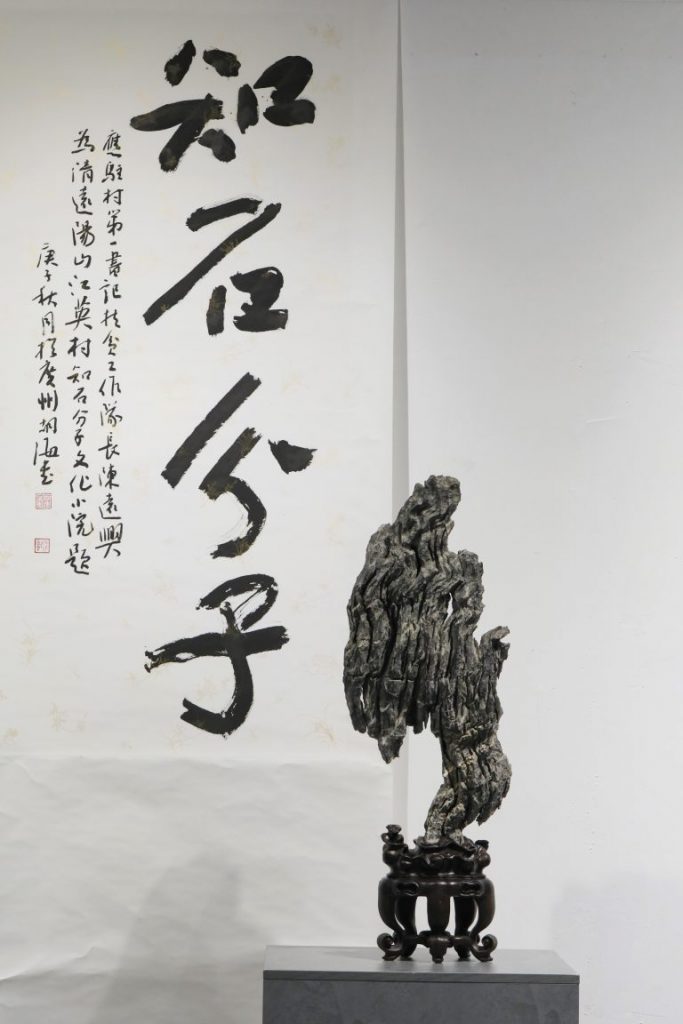 知石分子
應駐村第一書記扶贫工作隊長陳遠興
為清遠陽山江英村知石分子文化小院題
庚子秋月於廣州胡海